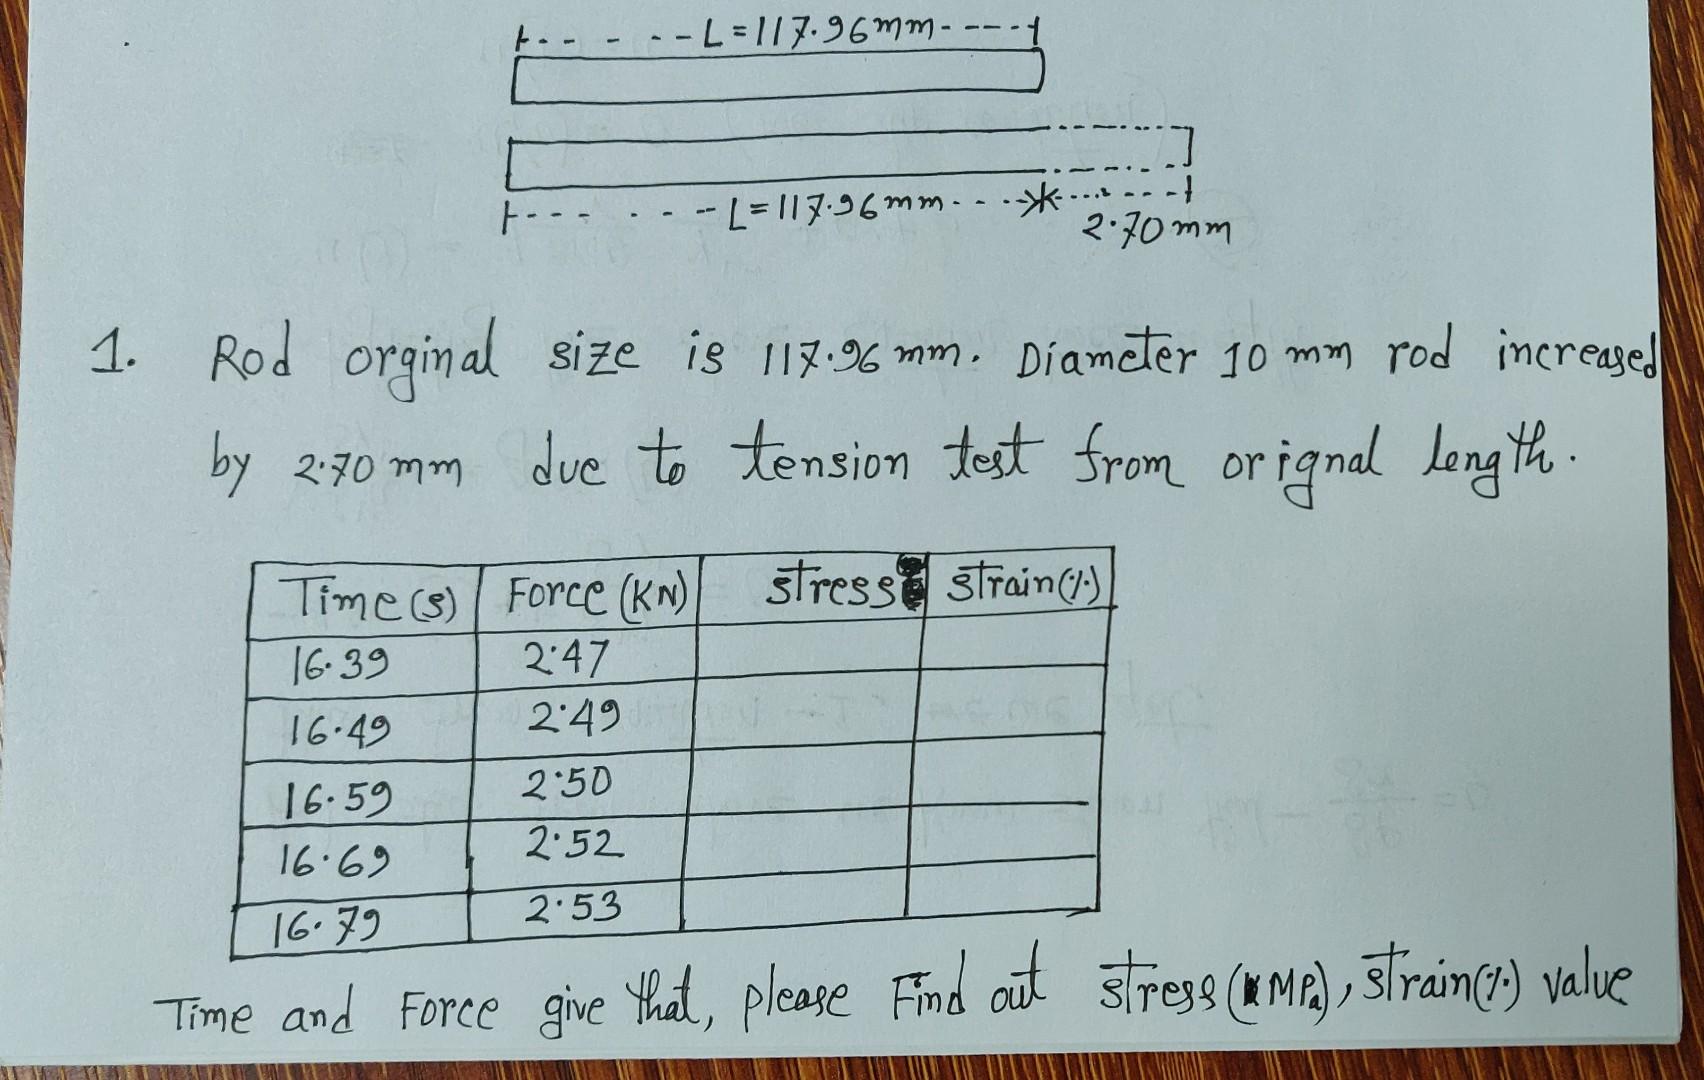 L=117.96mm
L=117.96mm
2.70mm
1. Rod orginal size is 117.96 mm. Diameter 10 mm rod increased
by 2.70 mm due to tension test from orignal length.
Time (s) Force (KN) stress strain(%)
16.39 2.47
16.49 2.49
16.59 2.50
16.69 2.52
16.79 2.53
Time and Force give that, please Find out stress (MPa), strain(%) value